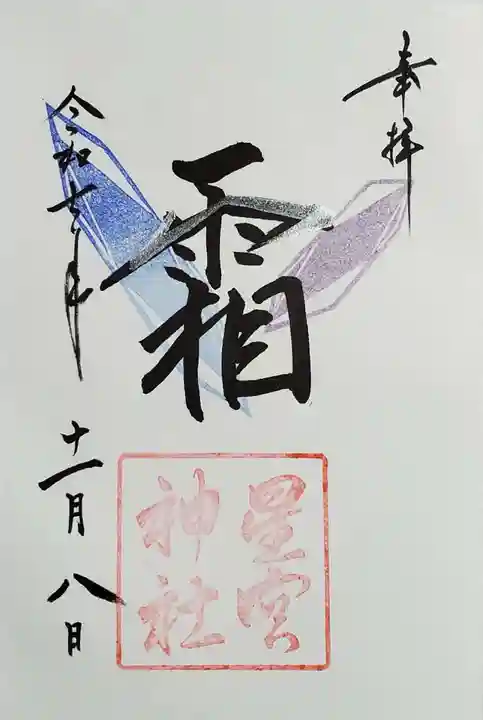 奉拝
霜
星宮
神社
令和年十一月八日